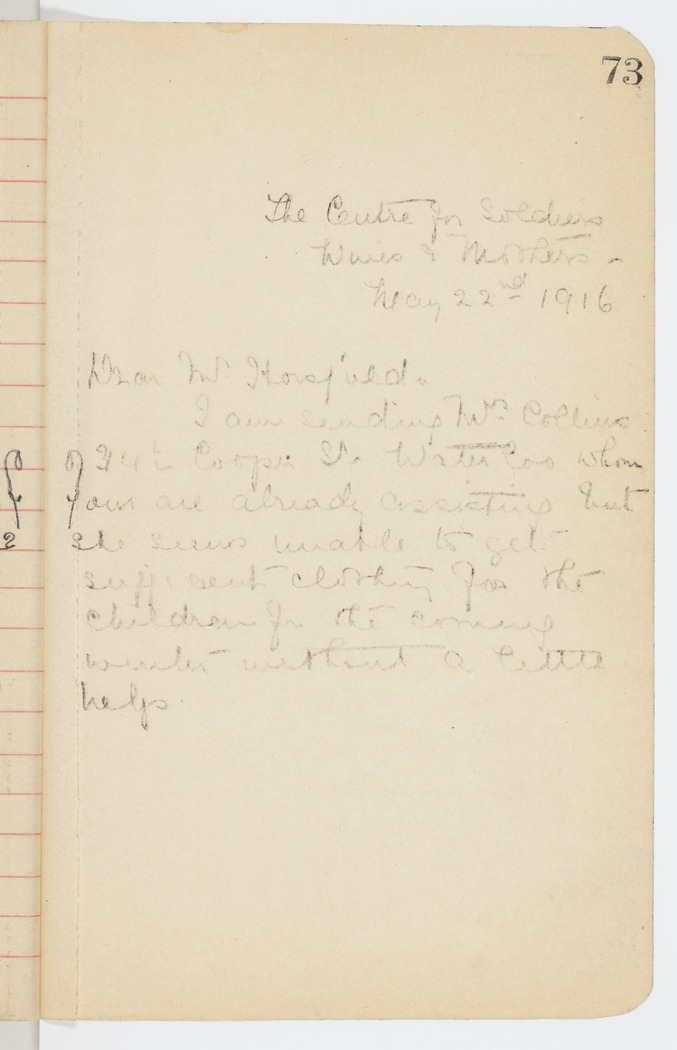 73
The Centre for Soldiers
Wives & Mothers -
May 22nd 1916
Dear Mr Horsfield.
I am sending Mrs Collins
of Cooper St. Waterloo whom
you are already assisting but
she seems unable to get
sufficient clothing for the
children for the coming
winter without a little
help.
2